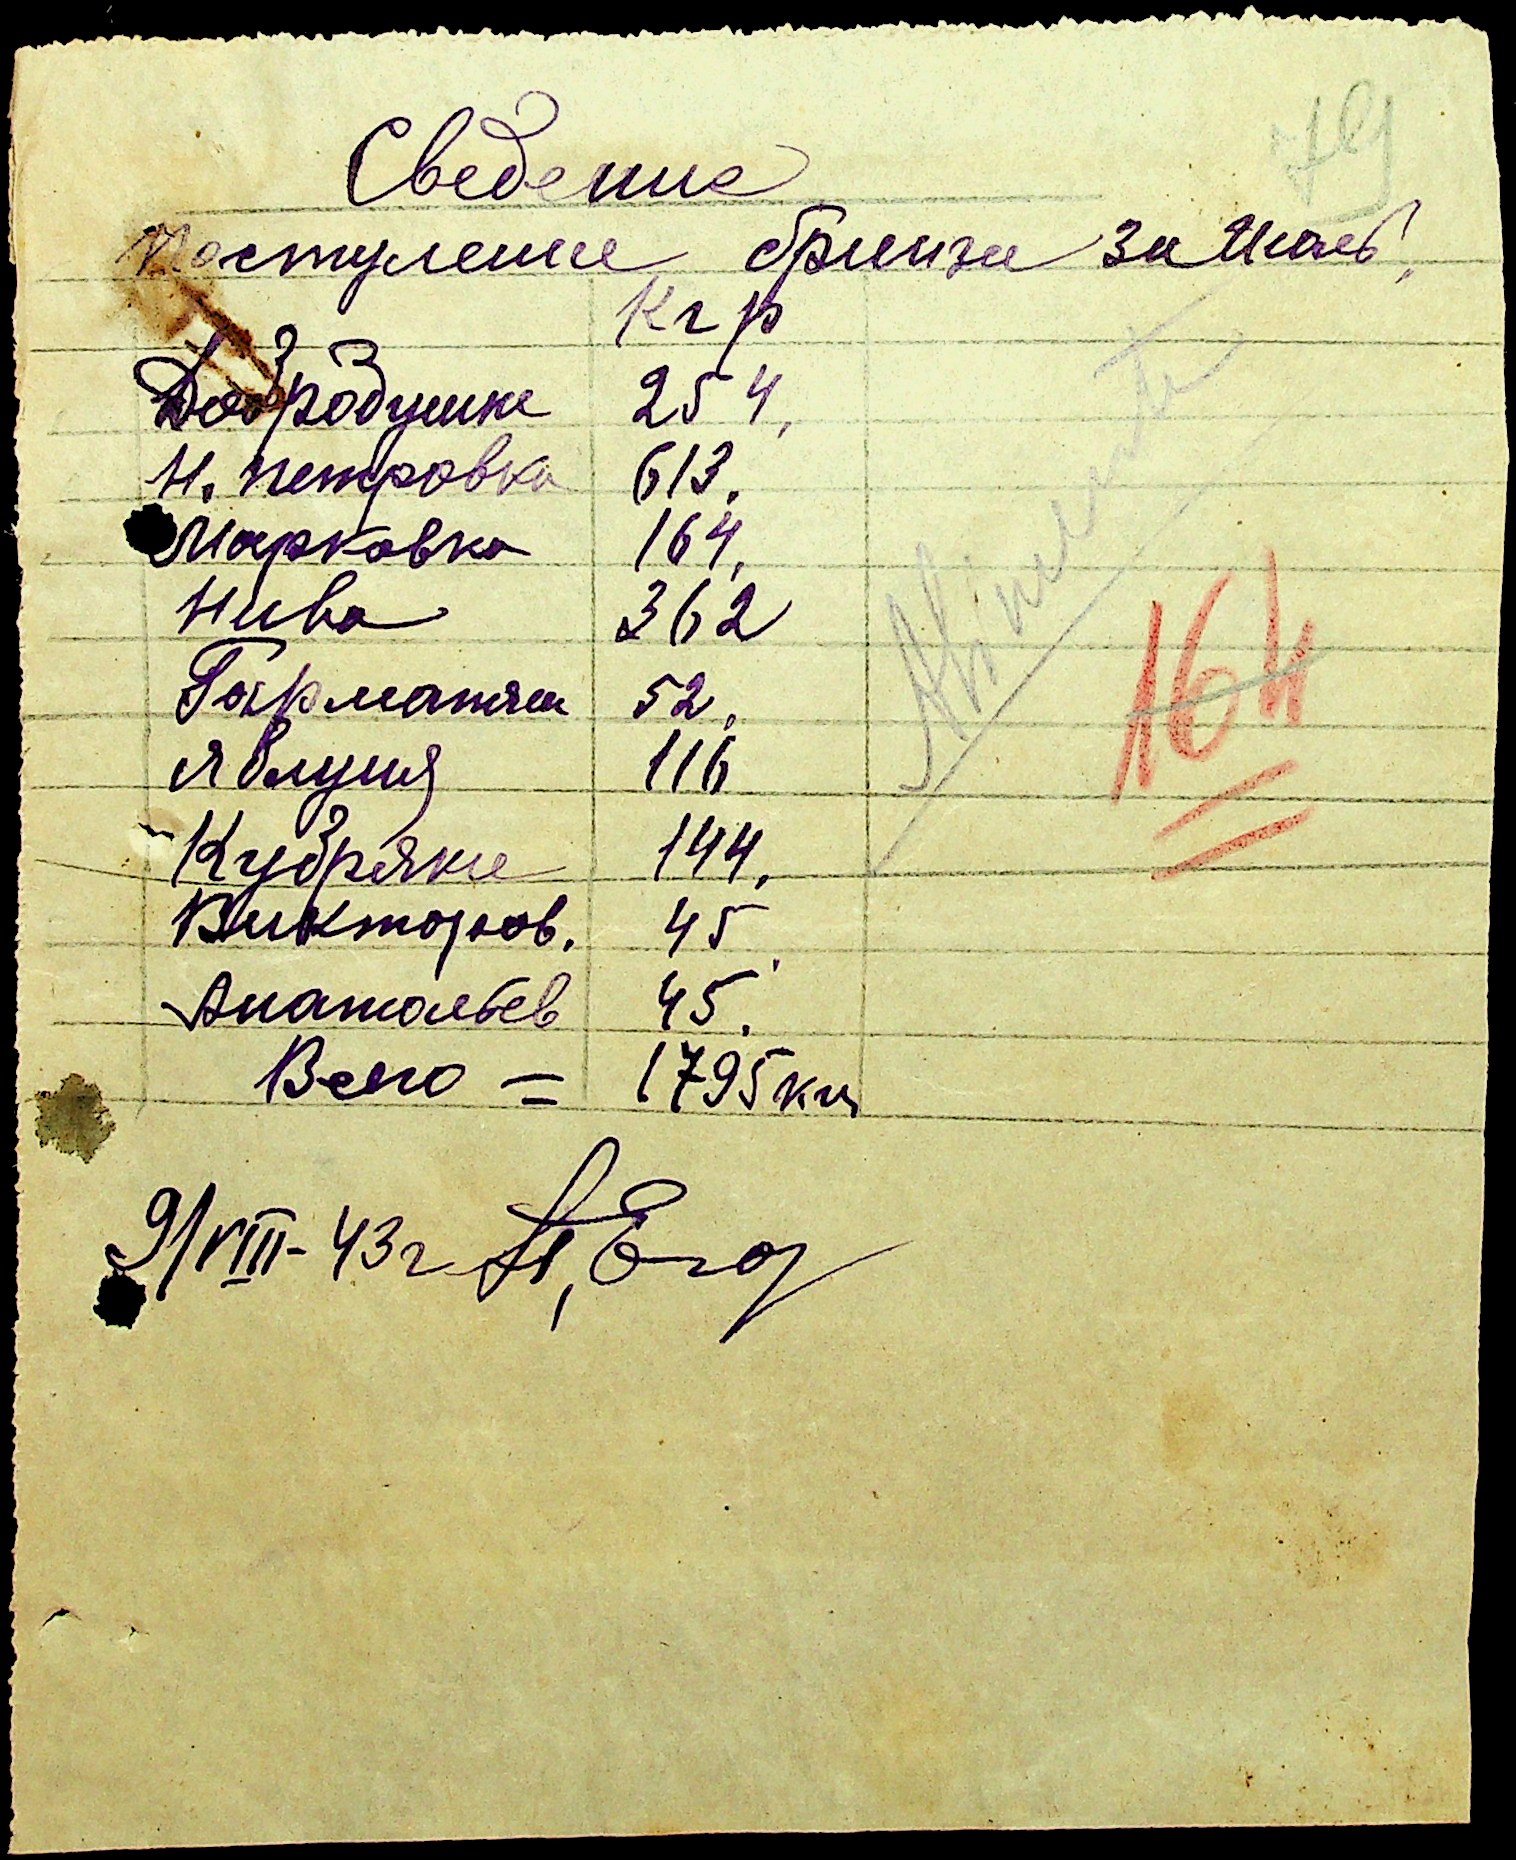 79
Сведение
Поступление брынзы за Июль,
Кгр
Добродушка 254,
Н. Петровка 613,
Марковка 164,
Нива 362
Гармацкая 52,
Явлуния 116
Кудряки 144,
Викторов. 45,
Анатольев 45,
Всего = 1795 кгц
Alimente
164
9/VIII-43г А, Егор